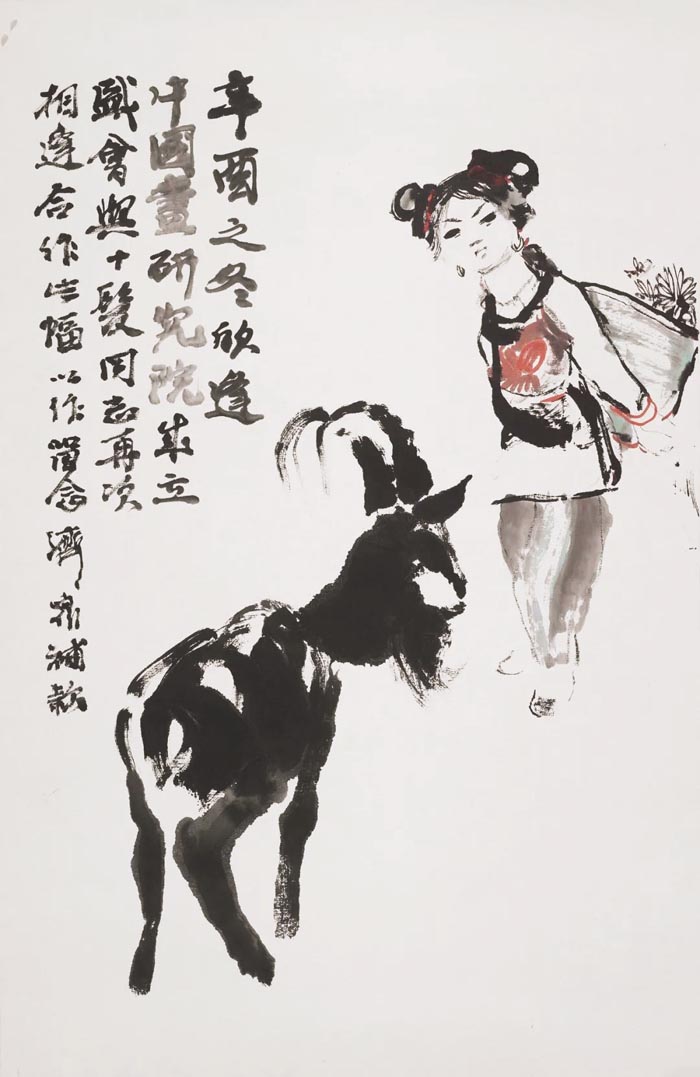 辛酉之冬欣逢
中国畫研究院成立
盛會與十髮同志再次
相逢合作此幅以作留念 濟泉補款